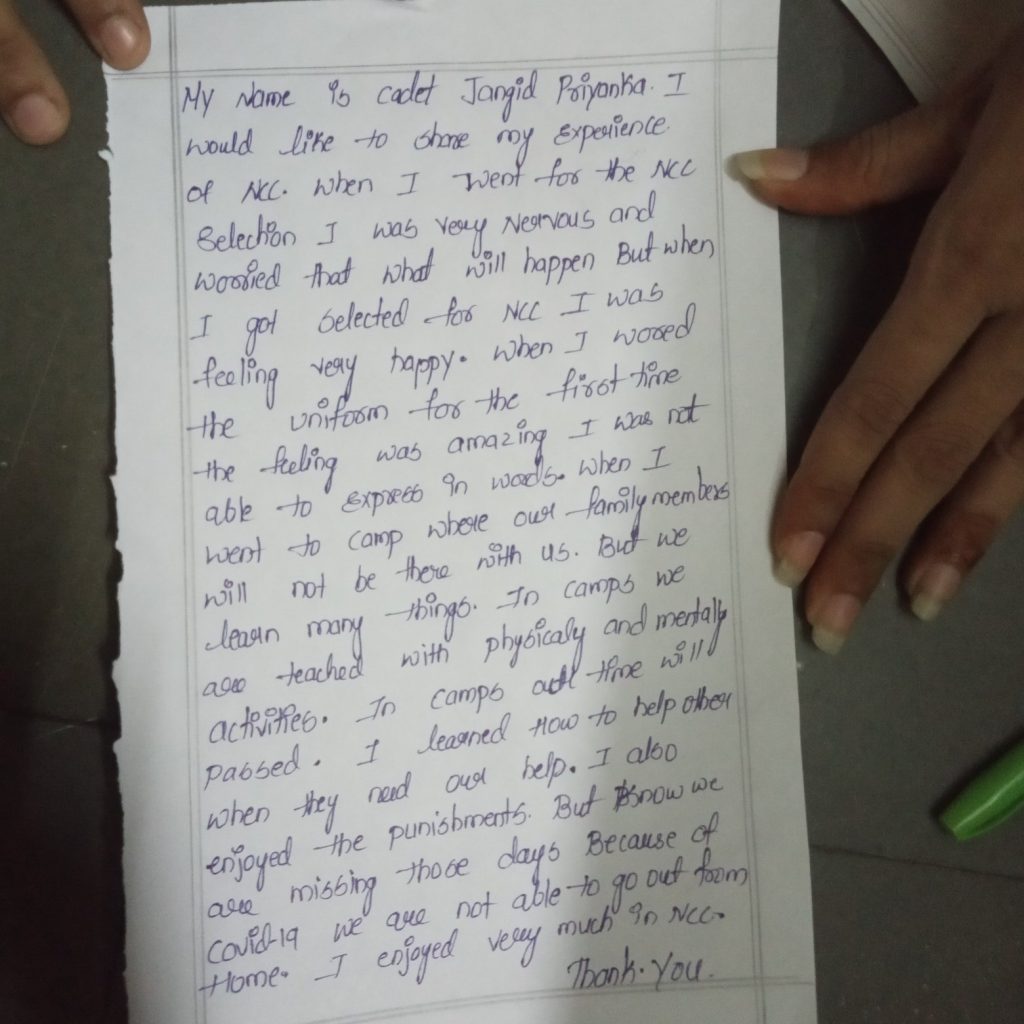 My Name is cadet Jangid Priyanka. I
would like to share my experience
of NCC. When I went for the NCC
Selection I was very Nervous and
worried that what will happen But when
I got selected for NCC I was
feeling very happy. When I wored
the uniform for the first time
the feeling was amazing I was not
able to express in words. When I
went to camp where our family members
will not be there with us. But we
learn many things. In camps we
are teached with physicaly and mentally
activities. In camps our time will
passed. I learned How to help other
when they need our help. I also
enjoyed the punishments. But know we
are missing those days Because of
covid-19 we are not able to go out from
Home. I enjoyed very much in NCC.
Thank. You.